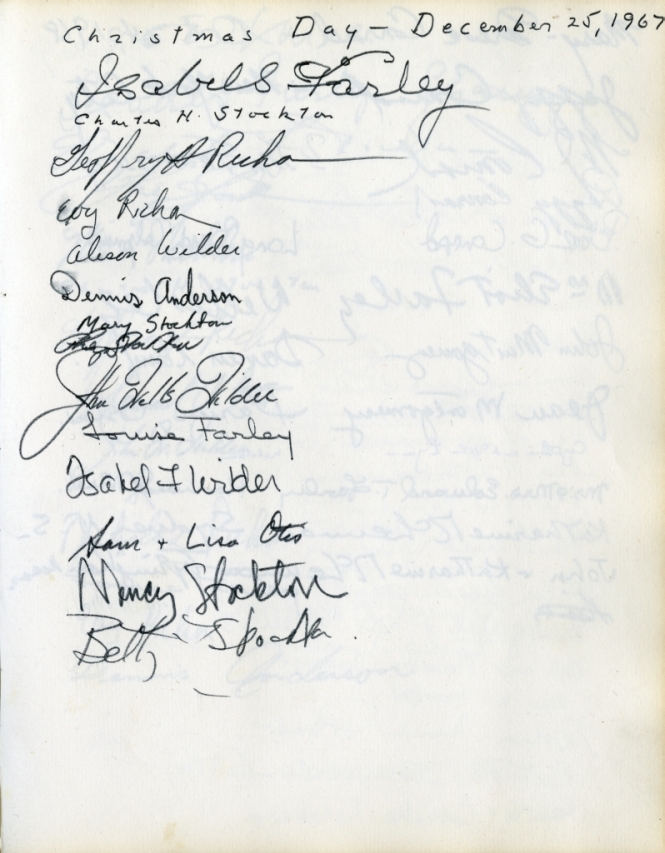 Christmas Day - December 25, 1967
Isabel S Farley
Charles H. Stockton
Geoffry A Richon
Evy Richon
Alison Wilder
Dennis Anderson
Mary Stockton
Stockton
John Wilder
Louise Farley
Isabel F Wilder
Sam + Lisa Otis
Nancy Stockton
Betty Stockton